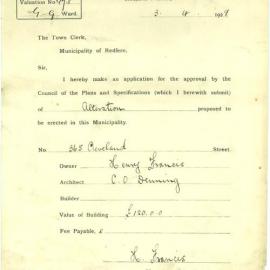 Valuation No.
Ward.
The Town Clerk,
Municipality of Redfern.
Sir,
I hereby make an application for the approval by the
Council of the Plans and Specifications (which I herewith submit)
of Alteration proposed to
be erected in this Municipality.
No. 365 Cleveland Street.
Owner Henry Francis
Architect C. O. Denning
Builder
Value of Building £120.0.0
Fee Payable, £
H. Francis